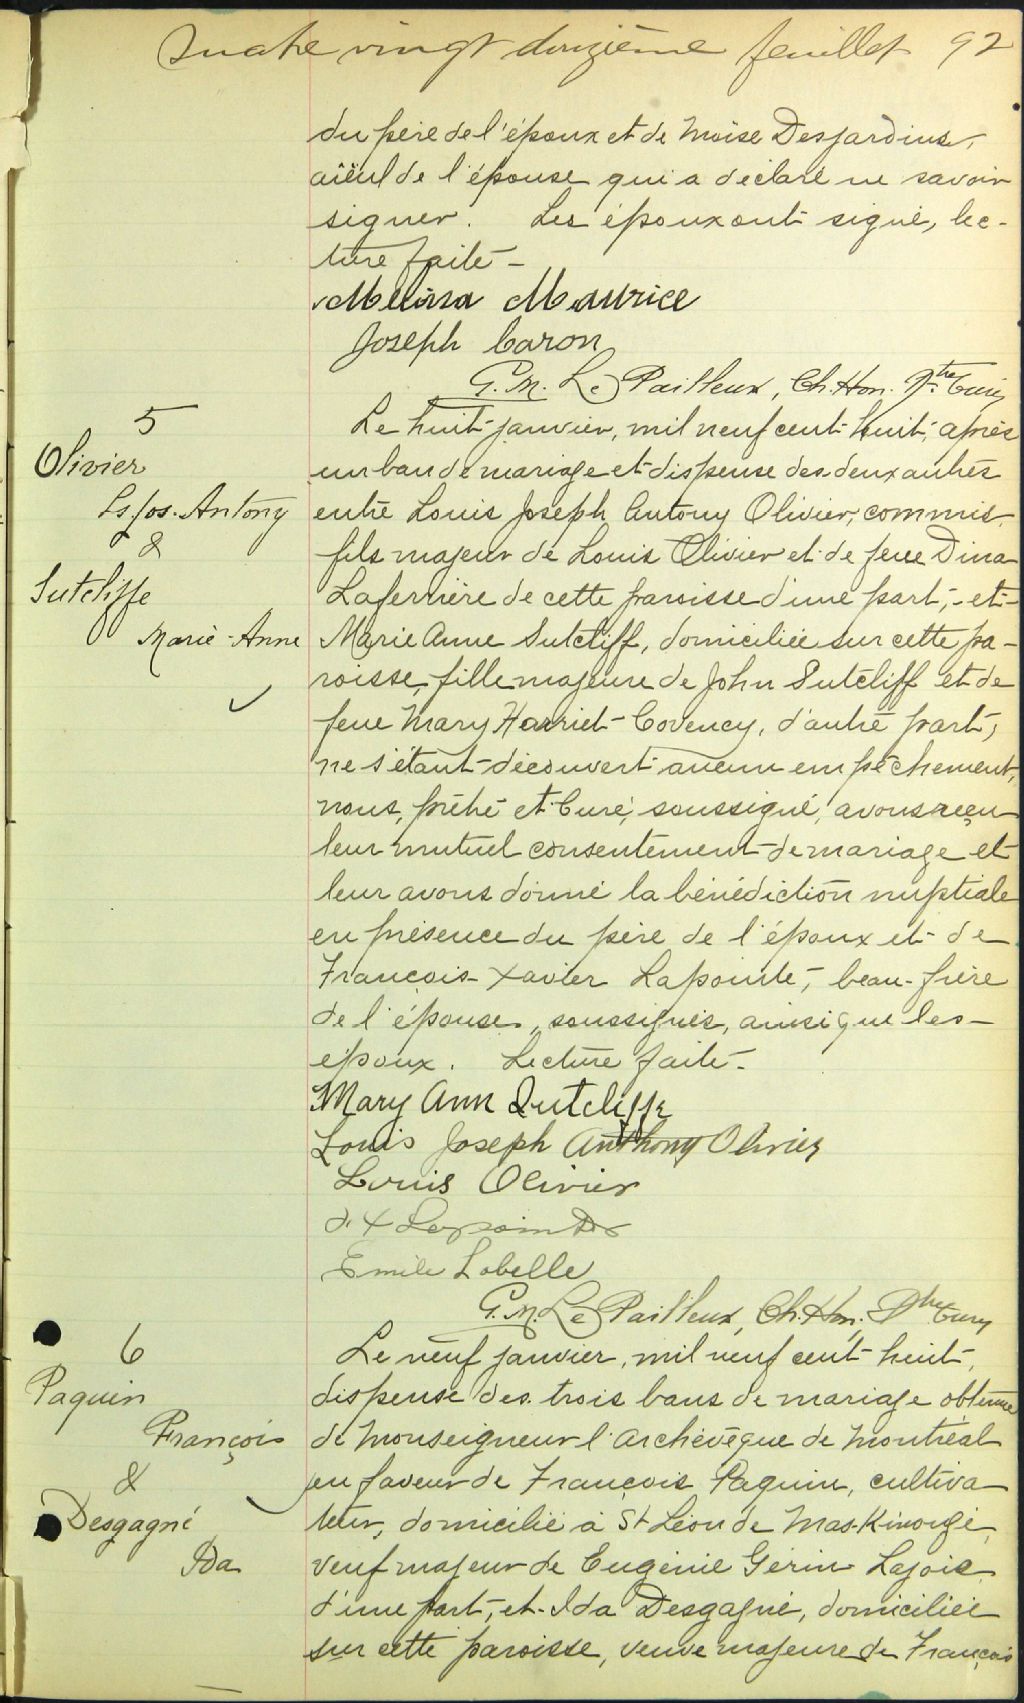 Quatre vingt douzième feuillet 92
du père de l'époux et de Moïse Desjardins,
aïeul de l'épouse qui a déclaré ne savoir
signer. Les époux ont signé, lec-
ture faite -
Melina Maurice
Joseph Caron
G. M. Le Pailleur, Ch. Hon. Ptre Curé
5
Olivier
Ls Jos. Antony
&
Sutcliffe
Marie-Anne
Le huit janvier, mil neuf cent huit, après
un ban de mariage et dispense des deux autres
entre Louis Joseph Antony Olivier, commis
fils majeur de Louis Olivier et de feue Dina
Laferrière de cette paroisse d'une part, - et -
Marie Anne Sutcliff, domiciliée sur cette pa-
roisse, fille majeure de John Sutcliff et de
feue Mary Harriet Covency, d'autre part,
ne s'étant découvert aucun empêchement,
nous, prêtre et Curé, soussigné, avons reçu
leur mutuel consentement de mariage et
leur avons donné la bénédiction nuptiale
en présence du père de l'époux et de
François-Xavier Lapointe, beau-frère
de l'épouse, soussignés, ainsi que les
époux. Lecture faite -
Mary Ann Sutcliffe
Louis Joseph Anthony Olivier
Louis Olivier
X Lapointe
Emile Labelle
G. M. Le Pailleur, Ch. Hon. Ptre Curé
6
Paquin
François
&
Desgagné
Ida
Le neuf janvier, mil neuf cent huit,
dispense des trois bans de mariage obtenue
de Monseigneur l'Archevêque de Montréal
en faveur de François Paquin, cultiva-
teur, domicilié à St Léon de Maskinongé,
veuf majeur de Eugénie Gérin Lajoie
d'une part, et Ida Desgagné, domiciliée
sur cette paroisse, veuve majeure de François